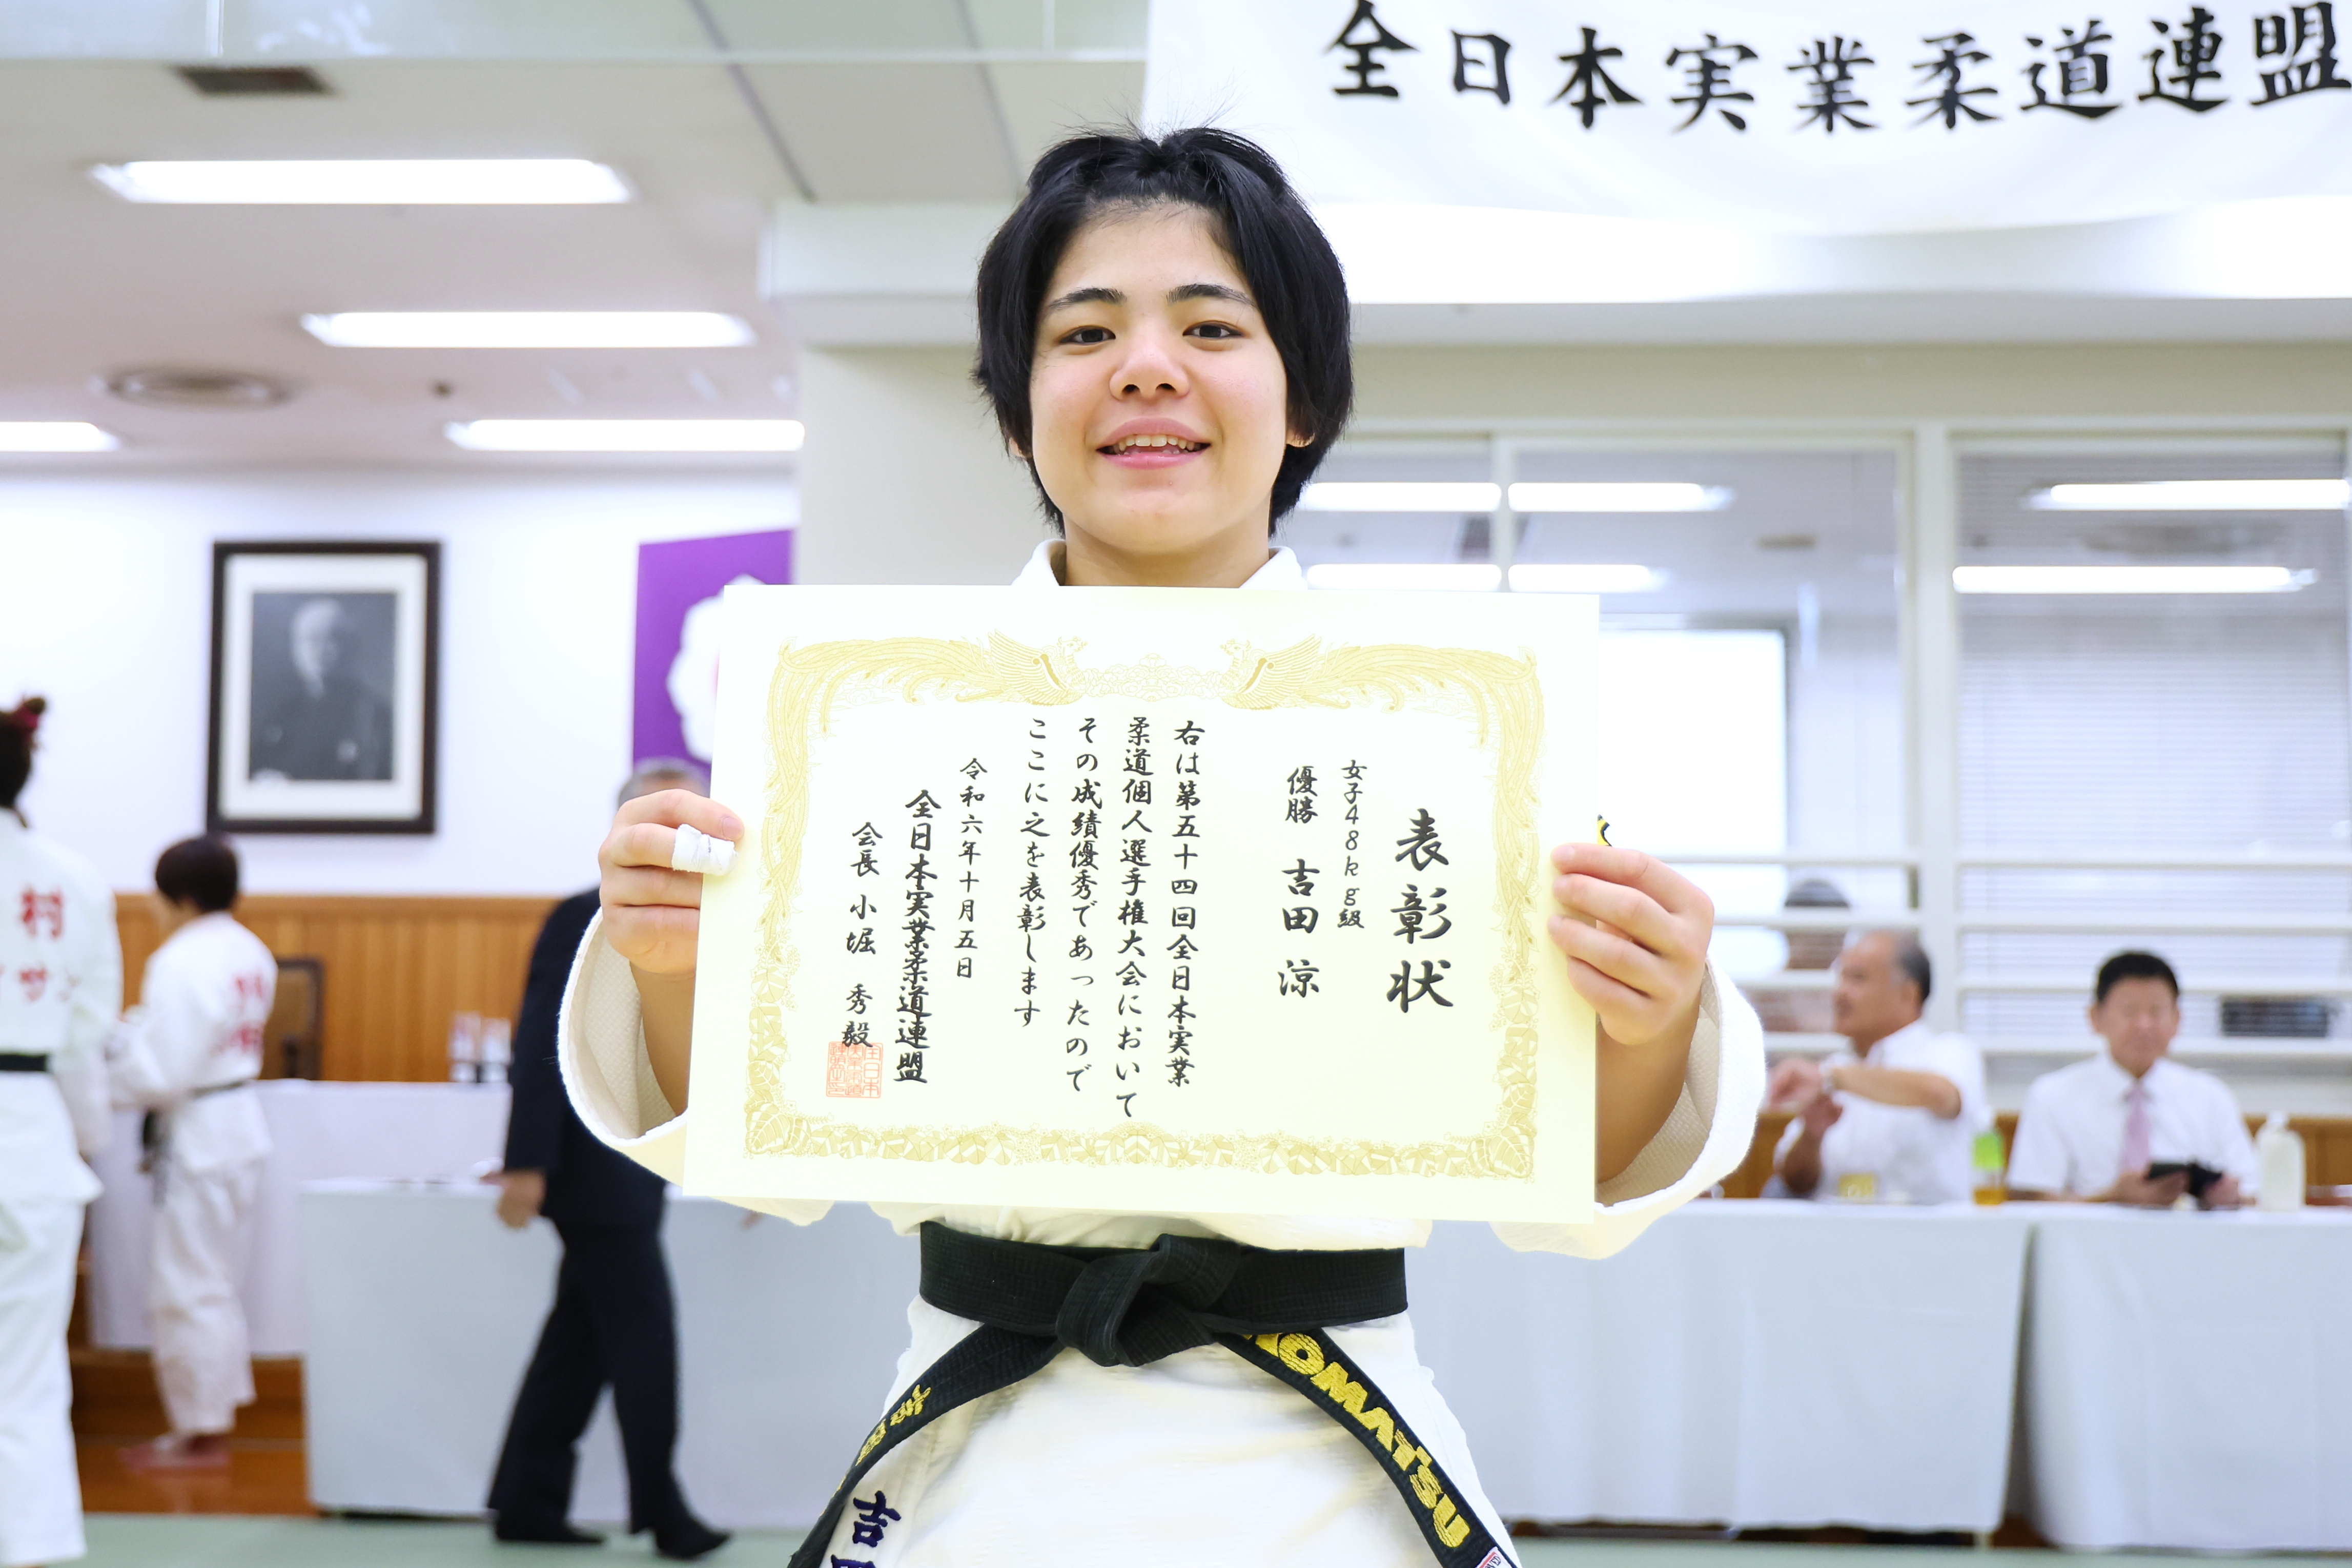 全日本実業柔道連盟
表彰状
女子48kg級
優勝 吉田 涼
右は第五十四回全日本実業
柔道個人選手権大会において
その成績優秀であったので
ここに之を表彰します
令和六年十月五日
全日本実業柔道連盟
会長 小堀 秀毅
村
吉田
KOMATSU
吉